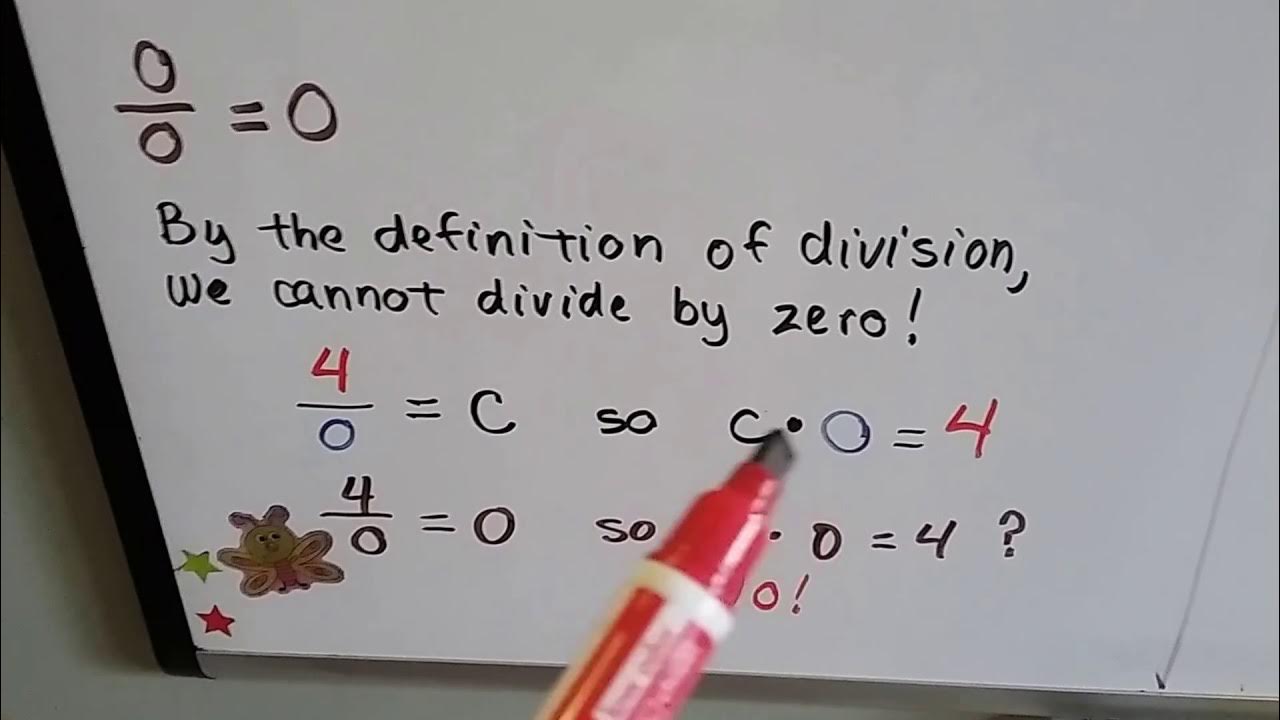 0/0 = 0
By the definition of division,
we cannot divide by zero!
4/0 = C so C · 0 = 4
4/0 = 0 so · 0 = 4 ?
o!